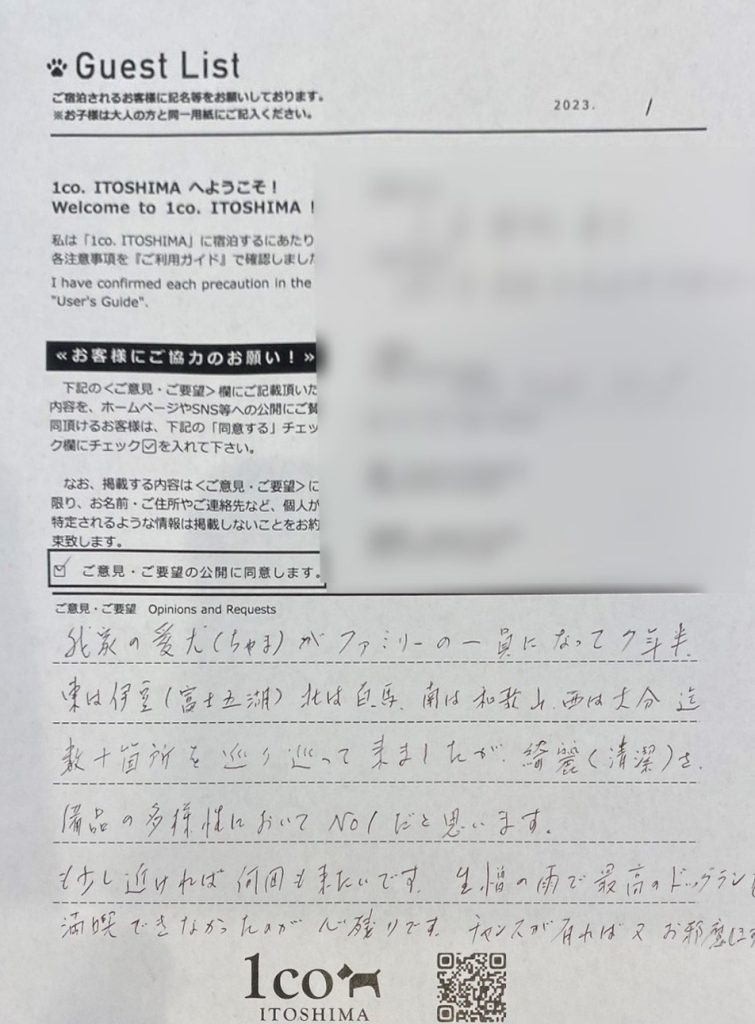 Guest List
ご宿泊されるお客様に記名等をお願いしております。
※お子様は大人の方と同一用紙にご記入ください。
2023. /
1co. ITOSHIMA へようこそ！
Welcome to 1co. ITOSHIMA !
私は「1co. ITOSHIMA」に宿泊するにあたり
各注意事項を『ご利用ガイド』で確認しました
I have confirmed each precaution in the
"User's Guide".
≪お客様にご協力のお願い！≫
下記の＜ご意見・ご要望＞欄にご記載頂いた
内容を、ホームページやSNS等への公開にご賛
同頂けるお客様は、下記の「同意する」チェッ
ク欄にチェック☑を入れて下さい。
なお、掲載する内容は＜ご意見・ご要望＞に
限り、お名前・ご住所やご連絡先など、個人が
特定されるような情報は掲載しないことをお約
束致します。
☑ ご意見・ご要望の公開に同意します。
ご意見・ご要望 Opinions and Requests
我家の愛犬(ちゃま)がファミリーの一員になって7年半、
東は伊豆(富士五湖) 北は白馬、南は和歌山、西は大分 迄
数十箇所を巡り巡って来ましたが、綺麗(清潔)さ、
備品の多様性においてNO1だと思います。
も少し近ければ何回も来たいです。生憎の雨で最高のドッグラン
満喫できなかったのが心残りです。チャンスが有れば又お邪魔
1co
ITOSHIMA